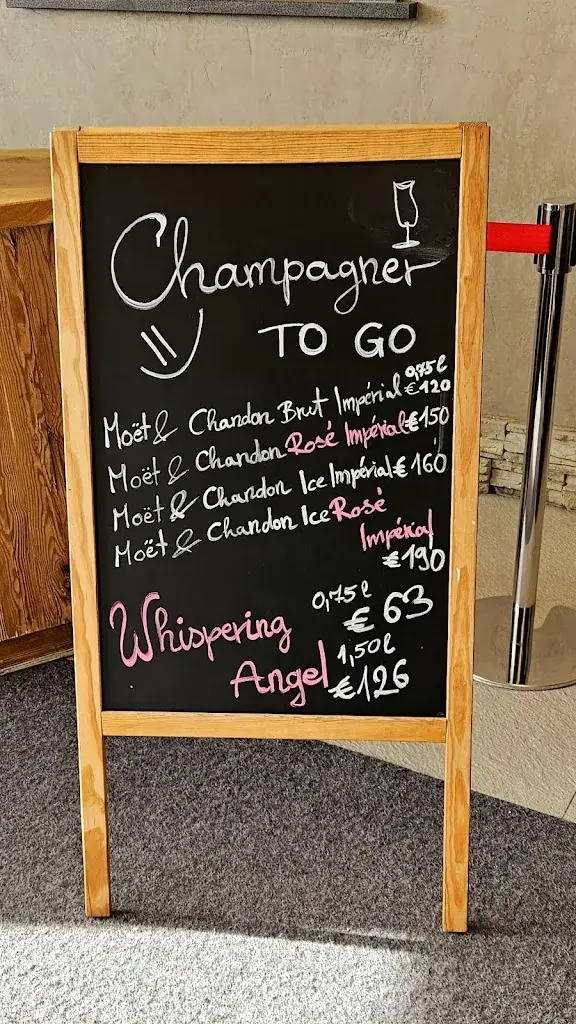 Champagner
TO GO
0,75l
Moët & Chandon Brut Impérial €120
Moët & Chandon Rosé Impérial €150
Moët & Chandon Ice Impérial €160
Moët & Chandon Ice Rosé
Impérial
€190
Whispering 0,75l € 63
Angel 1,50l €126